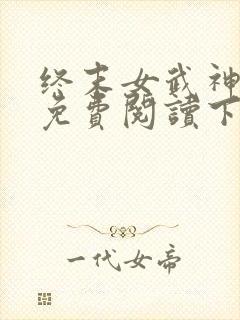 终末女武神
免費閱讀下
一代女帝